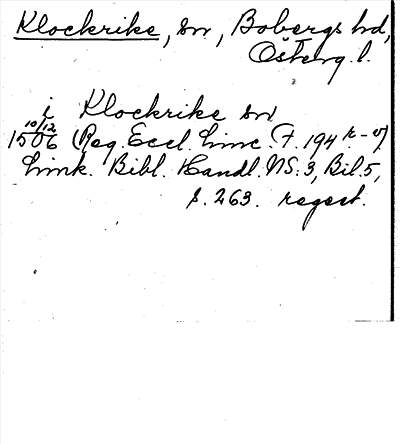 Klockrike, sn, Bobergs hd,
Österg. l.
i Klockrike sn
10/12
1506 (Reg. Eccl. Linc. F. 194 r-v)
Link. Bibl. Handl. NS: 3, Bil. 5,
s. 263. regest.